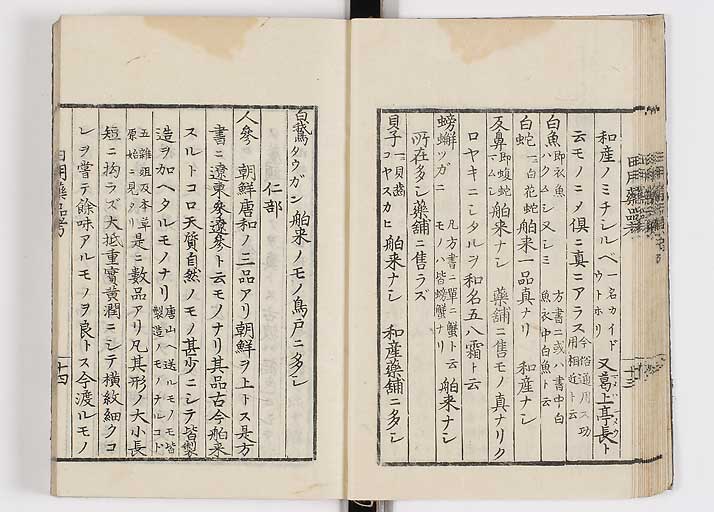 和産ノミチシルベ 一名カイドウトホリ 又葛上亭長ト
云モノニメ倶ニ真ニアラス 今俗通用ス功用相近ト云
白魚 即衣魚 ハクムシ 又シミ 方書ニ或ハ書中白魚衣中白魚ト云
白蛇 一ニ白花蛇 舶来一品真ナリ 和産ナシ
反鼻 即蝮蛇 マムシ 舶来ナシ 藥舗ニ售モノ真ナリク
ロヤキニシタルヲ和名五八霜ト云
螃蠏 ツガニ 凡方書ニ單ニ蟹ト云モノハ皆螃蟹ナリ 舶来ナシ
所在多シ藥舗ニ售ラズ
貝子 一ニ貝齒 コヤスカヒ 舶来ナシ 和産藥舗ニ多シ
白鵞 タウガン 舶来ノモノ鳥戸ニ多シ
仁部
人參 朝鮮唐和ノ三品アリ朝鮮ヲ上トス是方
書ニ遼東參遼參ト云モノナリ其品古今舶来
スルトコロ天質自然ノモノ甚少ニシテ皆製
造ヲ加ヘタルモノナリ 唐山ヘ送ルモノモ皆製造ノモノナルコト
五雜俎及本草原始ニ見タリ 是ニ數品アリ凡其形ノ大小長
短ニ拘ラズ大抵重實黄潤ニシテ横紋細クコ
レヲ嘗テ餘味アルモノヲ良トス今渡ルモノ
日用藥品考
十四
十三